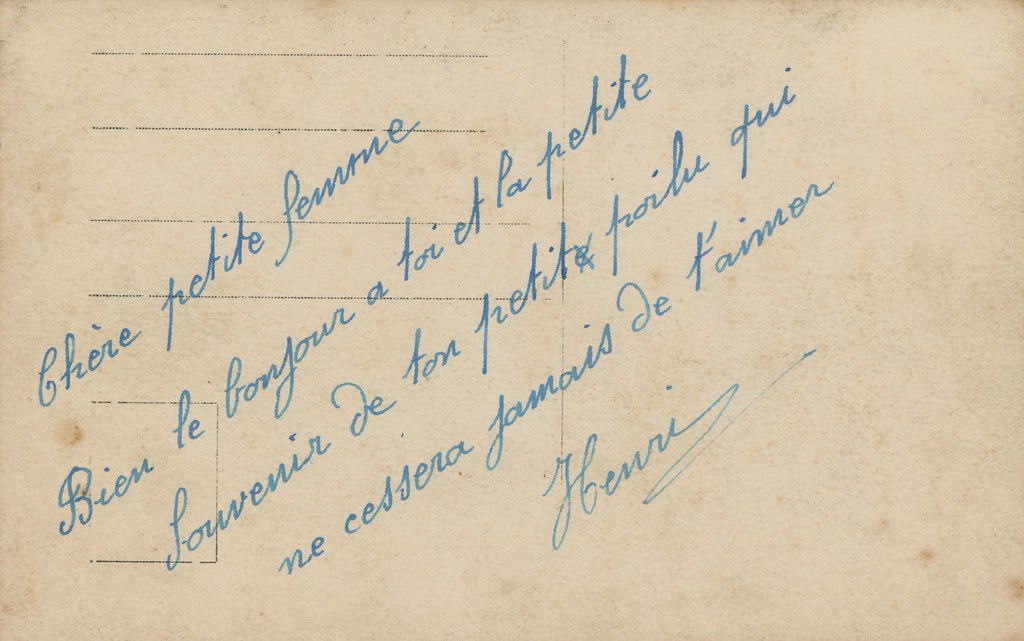 Chère petite femme
Bien le bonjour a toi et la petite
Souvenir de ton petit poilu qui
ne cessera jamais de t'aimer
Henri